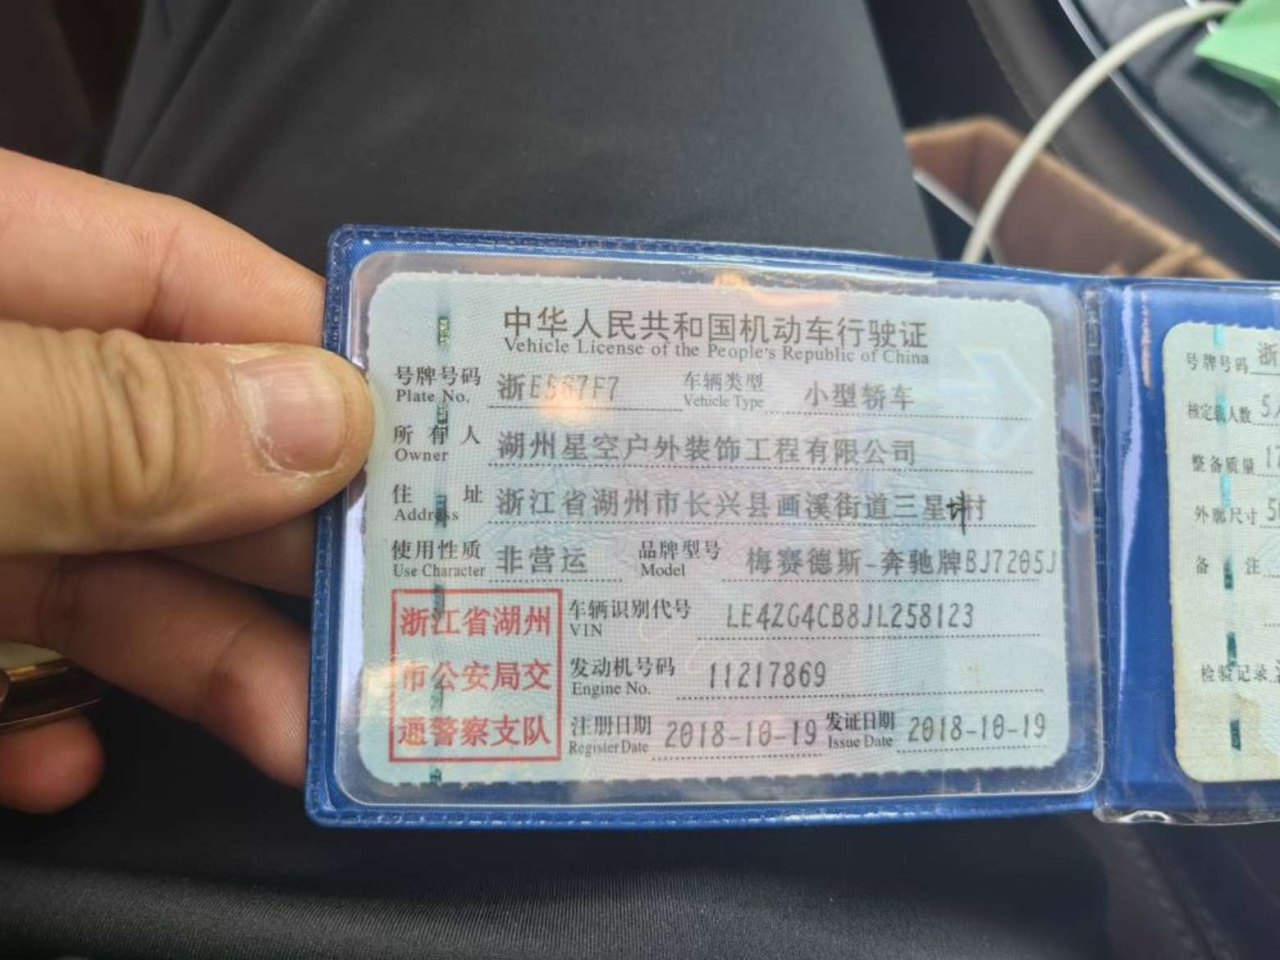 中华人民共和国机动车行驶证
Vehicle License of the People's Republic of China
号牌号码 浙E567F7 车辆类型 小型轿车
Plate No. Vehicle Type
所有人 湖州星空户外装饰工程有限公司
Owner
住址 浙江省湖州市长兴县画溪街道三星村
Address
使用性质 非营运 品牌型号 梅赛德斯-奔驰牌BJ7205J
Use Character Model
浙江省湖州
市公安局交
通警察支队
车辆识别代号 LE4ZG4CB8JL258123
VIN
发动机号码 11217869
Engine No.
注册日期 2018-10-19 发证日期 2018-10-19
Register Date Issue Date
号牌号码 浙
核定载人数
整备质量
外廓尺寸
备注
检验记录